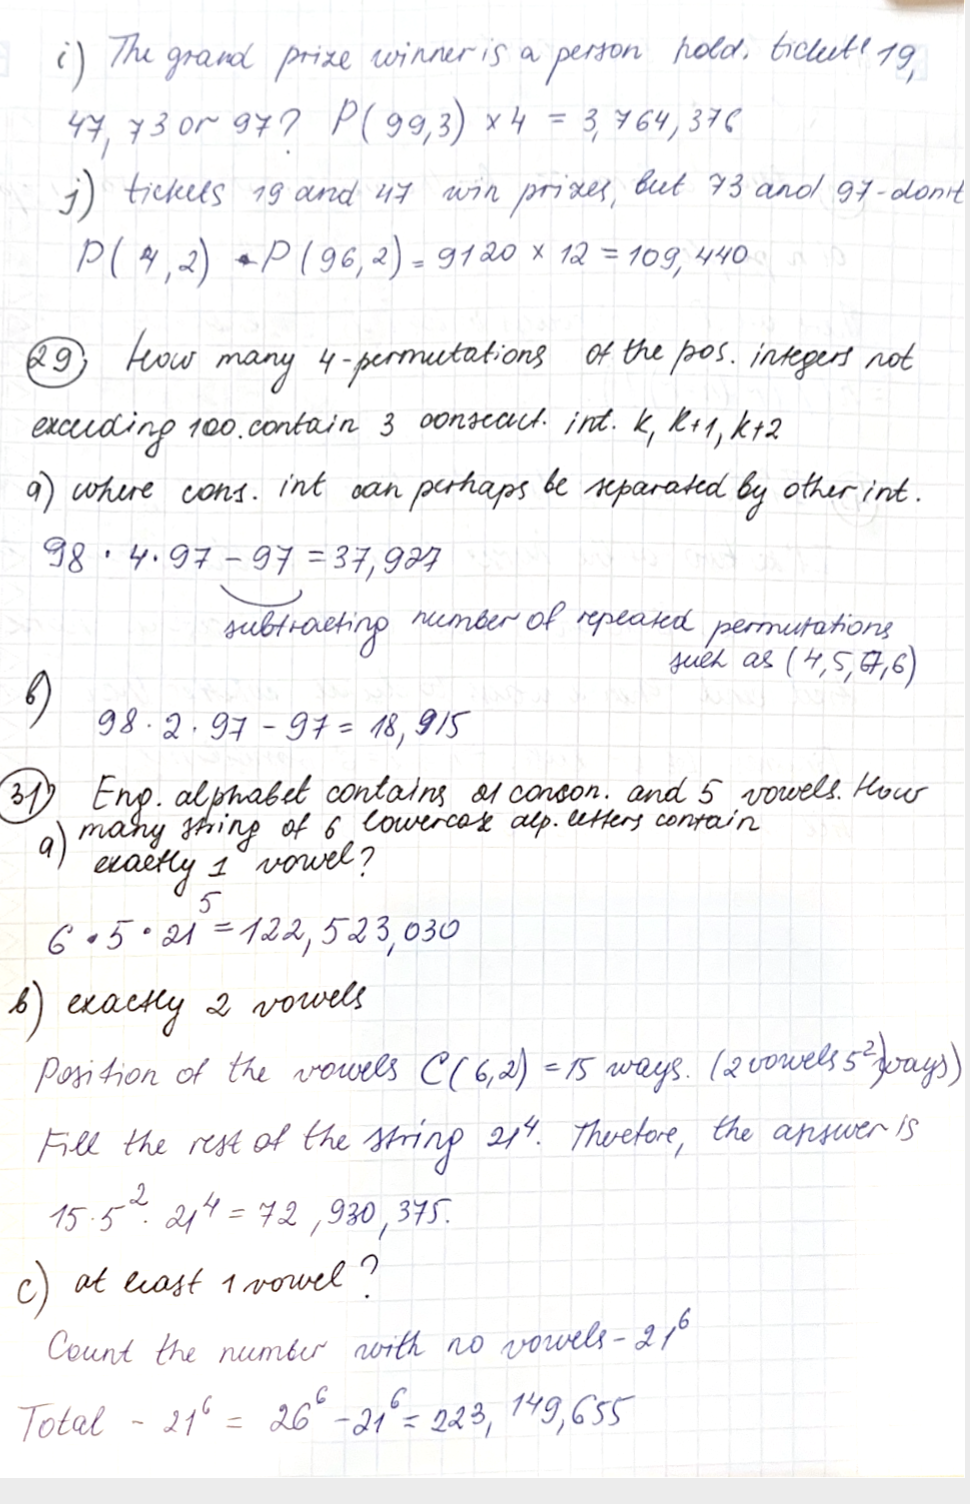 i) The grand prize winner is a person hold. ticket 19,
47, 73 or 97? P(99,3) × 4 = 3,764,376
j) tickets 19 and 47 win prizes, but 73 and 97 - don't
P(4,2) · P(96,2) = 9120 × 12 = 109,440
29) How many 4-permutations of the pos. integers not
exceeding 100. contain 3 consecut. int. k, k+1, k+2
a) where cons. int can perhaps be separated by other int.
98 · 4 · 97 - 97 = 37,927
subtracting number of repeated permutations
such as (4,5,7,6)
b)
98 · 2 · 97 - 97 = 18,915
31) Eng. alphabet contains 21 conson. and 5 vowels. How
many string of 6 lowercase alp. letters contain
a) exactly 1 vowel?
6 · 5 · 21⁵ = 122,523,030
b) exactly 2 vowels
Position of the vowels C(6,2) = 15 ways. (2 vowels 5² ways)
Fill the rest of the string 21⁴. Therefore, the answer is
15 · 5² · 21⁴ = 72,930,375.
c) at least 1 vowel?
Count the number with no vowels - 21⁶
Total - 21⁶ = 26⁶ - 21⁶ = 223,149,655